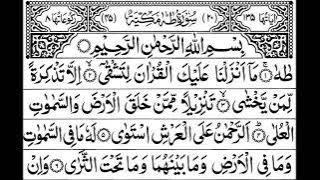 اٰیاتها ١٣٥ (٢٠) سُوْرَةُ طٰهٰ مَكِّیَّةٌ (٤٥) رکوعاتها ٨
بِسْمِ اللّٰهِ الرَّحْمٰنِ الرَّحِیْمِ
طٰهٰ ۚ مَاۤ اَنْزَلْنَا عَلَیْكَ الْقُرْاٰنَ لِتَشْقٰۤى ۙ اِلَّا تَذْكِرَةً
لِّمَنْ یَّخْشٰى ۙ تَنْزِیْلًا مِّمَّنْ خَلَقَ الْاَرْضَ وَالسَّمٰوٰتِ
الْعُلٰى ؕ اَلرَّحْمٰنُ عَلَى الْعَرْشِ اسْتَوٰى ۝ لَهٗ مَا فِی السَّمٰوٰتِ
وَمَا فِی الْاَرْضِ وَمَا بَیْنَهُمَا وَمَا تَحْتَ الثَّرٰى ۝ وَاِنْ